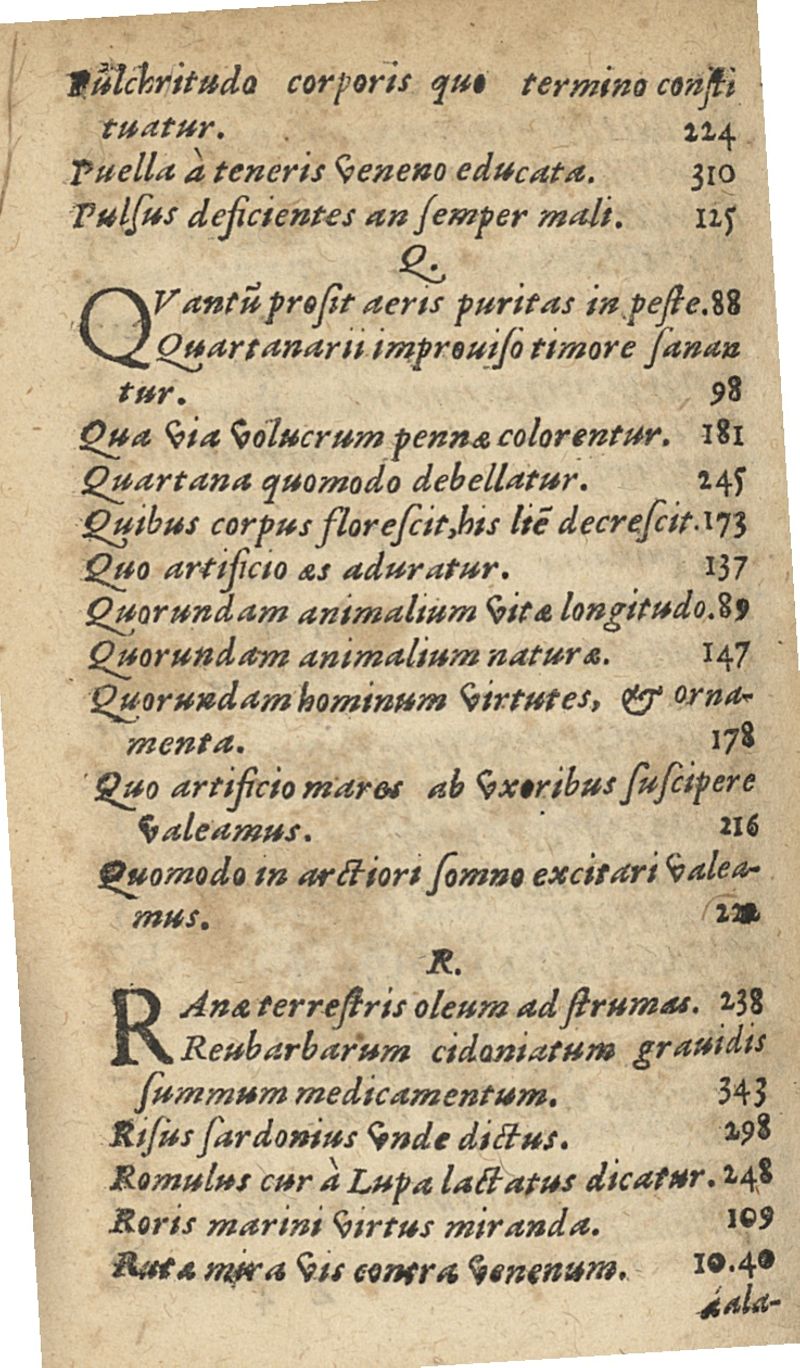 Pulchritudo corporis quo termino consti
tuatur. 224
Puella à teneris veneno educata. 310
Pulsus deficientes an semper mali. 125
Q.
QVantũ prosit aeris puritas in peste. 88
Quartanarii improuiso timore sanan
tur. 98
Qua via volucrum pennæ colorentur. 181
Quartana quomodo debellatur. 245
Quibus corpus florescit, his liē decrescit. 173
Quo artificio æs aduratur. 137
Quorundam animalium vitæ longitudo. 89
Quorundam animalium naturæ. 147
Quorundam hominum virtutes, & orna-
menta. 178
Quo artificio mares ab vxoribus suscipere
valeamus. 216
Quomodo in arctiori somno excitari valea-
mus.
R.
RAnæ terrestris oleum ad strumas. 238
Reubarbarum cidoniatum grauidis
summum medicamentum. 343
Risus sardonius vnde dictus. 298
Romulus cur à Lupa lactatus dicatur. 248
Roris marini virtus miranda. 109
Rutæ mira vis contra venenum. 10.40